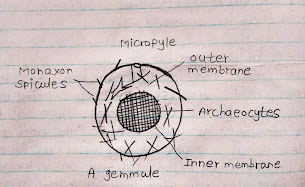 Micropyle
outer
membrane
Monaxon
spicules
Archaeocytes
Inner membrane
A gemmule